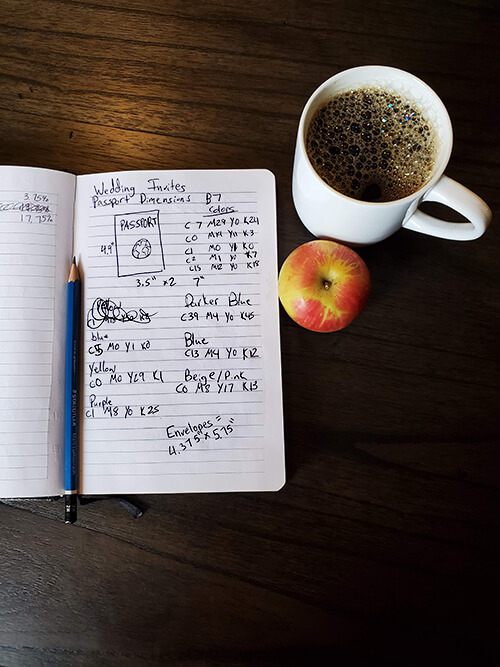 3.75%
17.75%
Wedding Invites
Passport Dimensions B7
Colors
PASSPORT
4.9"
C7 M29 Y0 K24
C0 Y11 K3
C1 M0 Y8 K0
C2 M1 Y0 K7
C15 M12 Y0 K18
3.5" x2 7"
Darker Blue
C39 M4 Y0 K45
blue
C5 M0 Y1 K0
Blue
C13 M4 Y0 K12
Yellow
C0 M0 Y29 K1
Beige/Pink
C0 M8 Y17 K13
Purple
C1 M8 Y0 K25
Envelopes =
4.375" x 5.75"